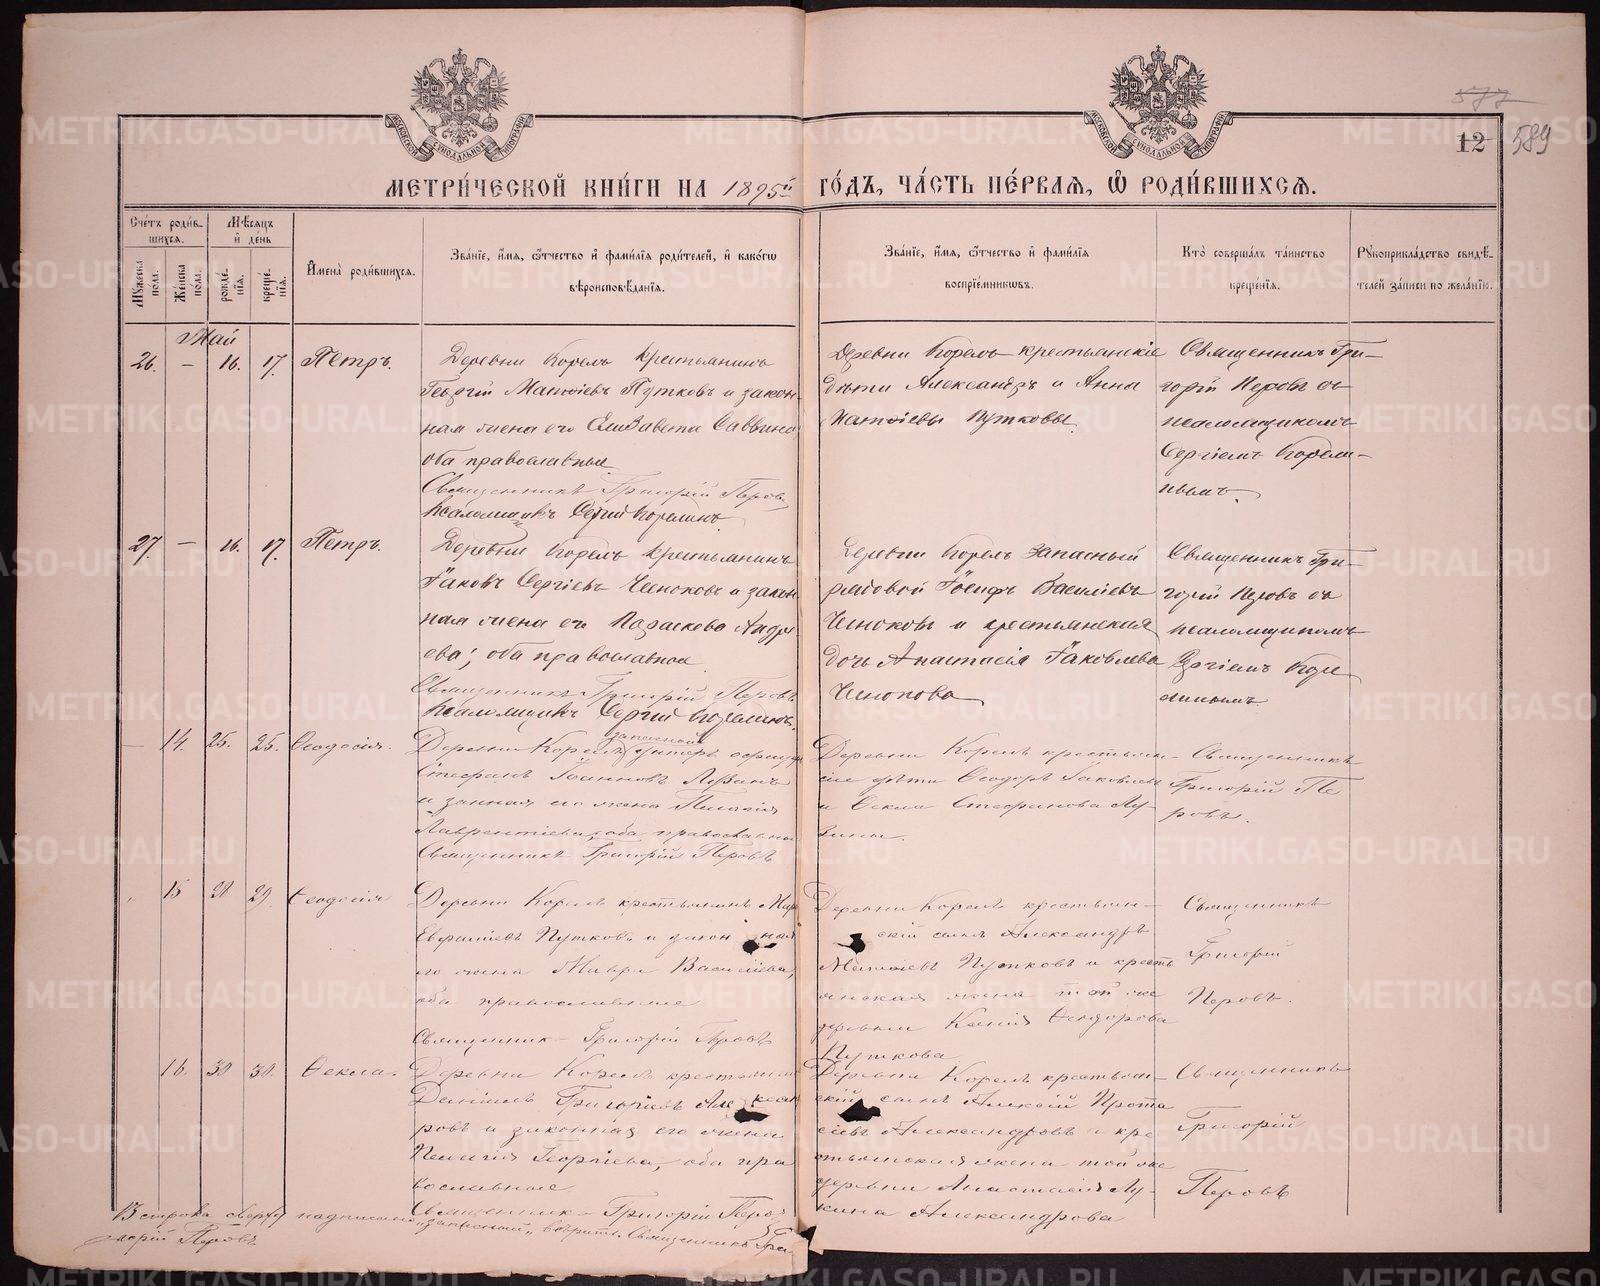 577
12 589
МЕТРИ́ЧЕСКОЙ КНИ́ГИ НА 1895й ГО́ДЪ, ЧА́СТЬ ПЕ́РВАЯ, Ѽ РОДИ́ВШИХСЯ.
Сче́тъ роди́в-
шихся.
Мѣ́сяцъ
и҆ де́нь
Му́жеска пола.
Же́нска пола.
рожде́-
нїѧ.
креще́-
нїѧ.
И҆мена̀ роди́вшихся.
Зва́нїе, и҆́мѧ, ѻ҆́тчество и҆ фами́лїѧ роди́телей, и҆ како́гѡ
вѣроисповѣ́данїѧ.
Зва́нїе, и҆́мѧ, ѻ҆́тчество и҆ фами́лїѧ
воспрїе́мникѡвъ.
Кто̀ соверша́лъ та́инство
креще́нїѧ.
Рукоприкла́дство свидѣ́-
телей за́писи по жела́нїю.
Май
26. — 16. 17. Петръ.
Деревни Корелъ крестьянинъ
Георгій Матѳіевъ Путковъ и закон-
ная жена его Елизавета Саввина
оба православные
Священникъ Григорій Перовъ
Псаломщикъ Сергій Корелинъ
Деревни Корелъ крестьянскіе
дѣти Александръ и Анна
Матѳіевы Путковы
Священникъ Гри-
горій Перовъ съ
псаломщикомъ
Сергіемъ Корели-
нымъ.
27. — 16. 17. Петръ.
Деревни Корелъ крестьянинъ
Іаковъ Сергіевъ Чесноковъ и закон
ная жена его Параскева Андре
ева; оба православные
Священникъ Григорій Перовъ
Псаломщикъ Сергій Корелинъ
Деревни Корелъ запасный
рядовой Іосифъ Василіевъ
Чесноковъ и крестьянская
дочь Анастасія Іаковлева
Чеснокова
Священникъ Гри-
горій Перовъ съ
псаломщикомъ
Сергіемъ Коре
линымъ
— 14. 25. 25. Ѳеодосія.
запасный
Деревни Корелъ унтеръ офицеръ
Стефанъ Іоанновъ
и законная его жена Пелагія
Лаврентіева, оба православны
Священникъ Григорій Перовъ
Деревни Корелъ крестьян-
скіе дѣти Ѳеодоръ Іаковлевъ
и Ѳекла Стефанова Лу-
зины.
Священникъ
Григорій Пе
ровъ.
15 28 29. Ѳеодосія
Деревни Корелъ крестьянинъ
Евфиміевъ Путковъ и законная
его жена Мавра Василіева,
оба православные
Священникъ Григорій Перовъ
Деревни Корелъ крестьян-
скій сынъ Александръ
Матѳіевъ Путковъ и кресть
янская жена той же
деревни Ксенія Ѳеодорова
Путкова
Священникъ
Григорій
Перовъ.
16. 30 30. Ѳекла.
Деревни Корелъ крестьянинъ
Даніилъ Григоріевъ Александ
ровъ и законная его жена
Пелагія Георгіева, оба пра
вославные
Священникъ Григорій Перовъ
Деревни Корелъ крестьян-
скій сынъ Алексій Прота
сіевъ Александровъ и кре
стьянская жена той же
деревни Анастасія Лу-
кина Александрова
Священникъ
Григорій
Перовъ
строка сверху надписано „запасный„ вѣрить. Священникъ Гри-
горій Перовъ
METRIKI.GASO-URAL.RU